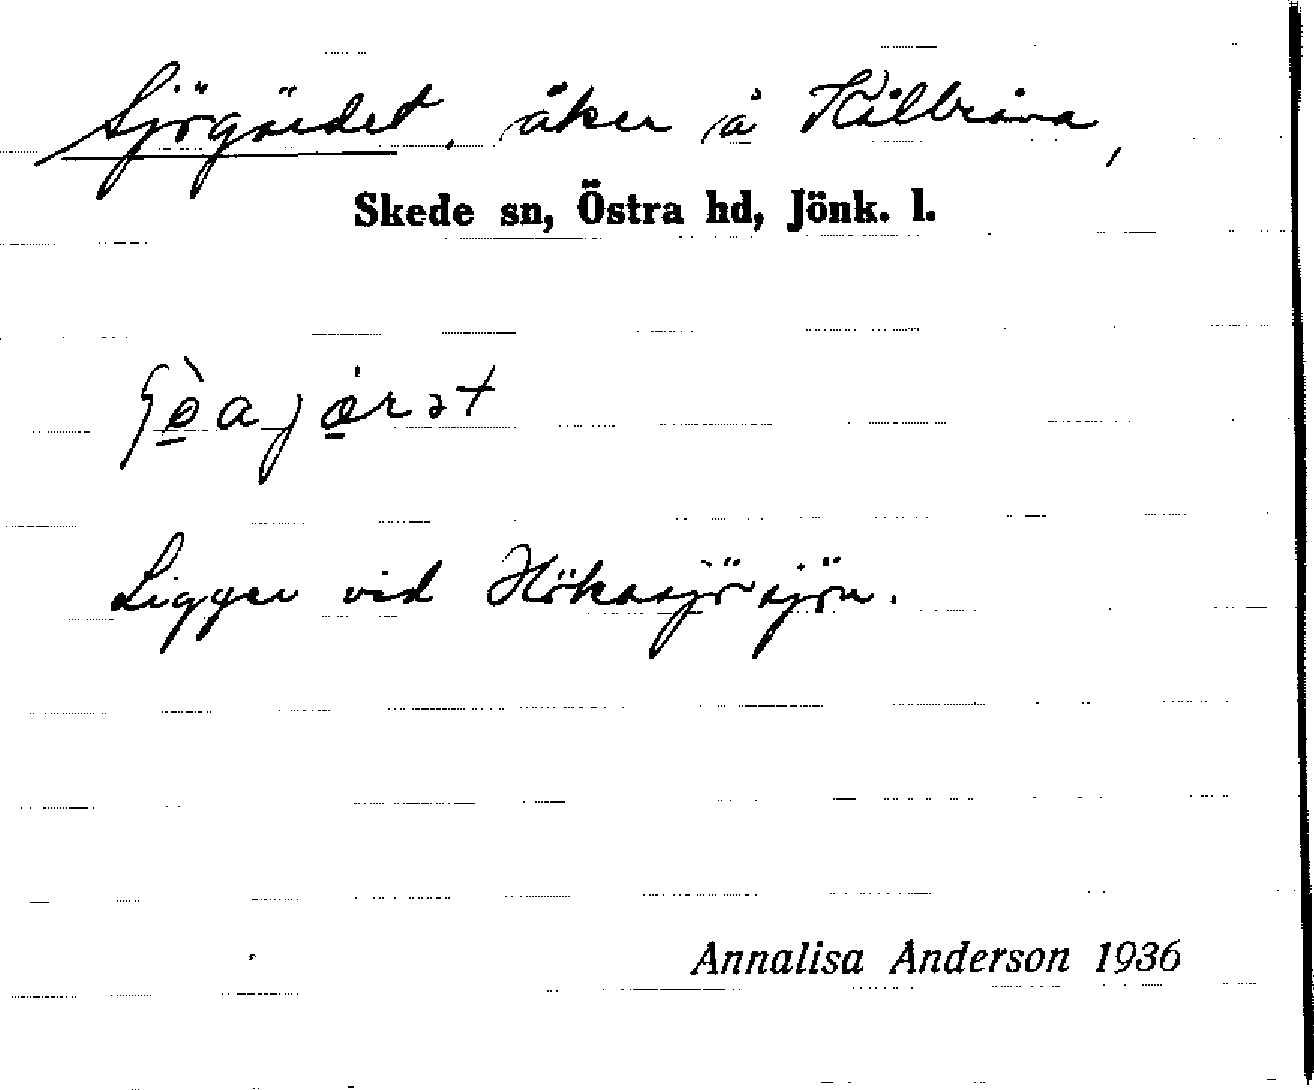 Sjögärdet, åker å Kålbråna,
Skede sn, Östra hd, Jönk. l.
Ligger vid Hökasjösjön.
Annalisa Anderson 1936